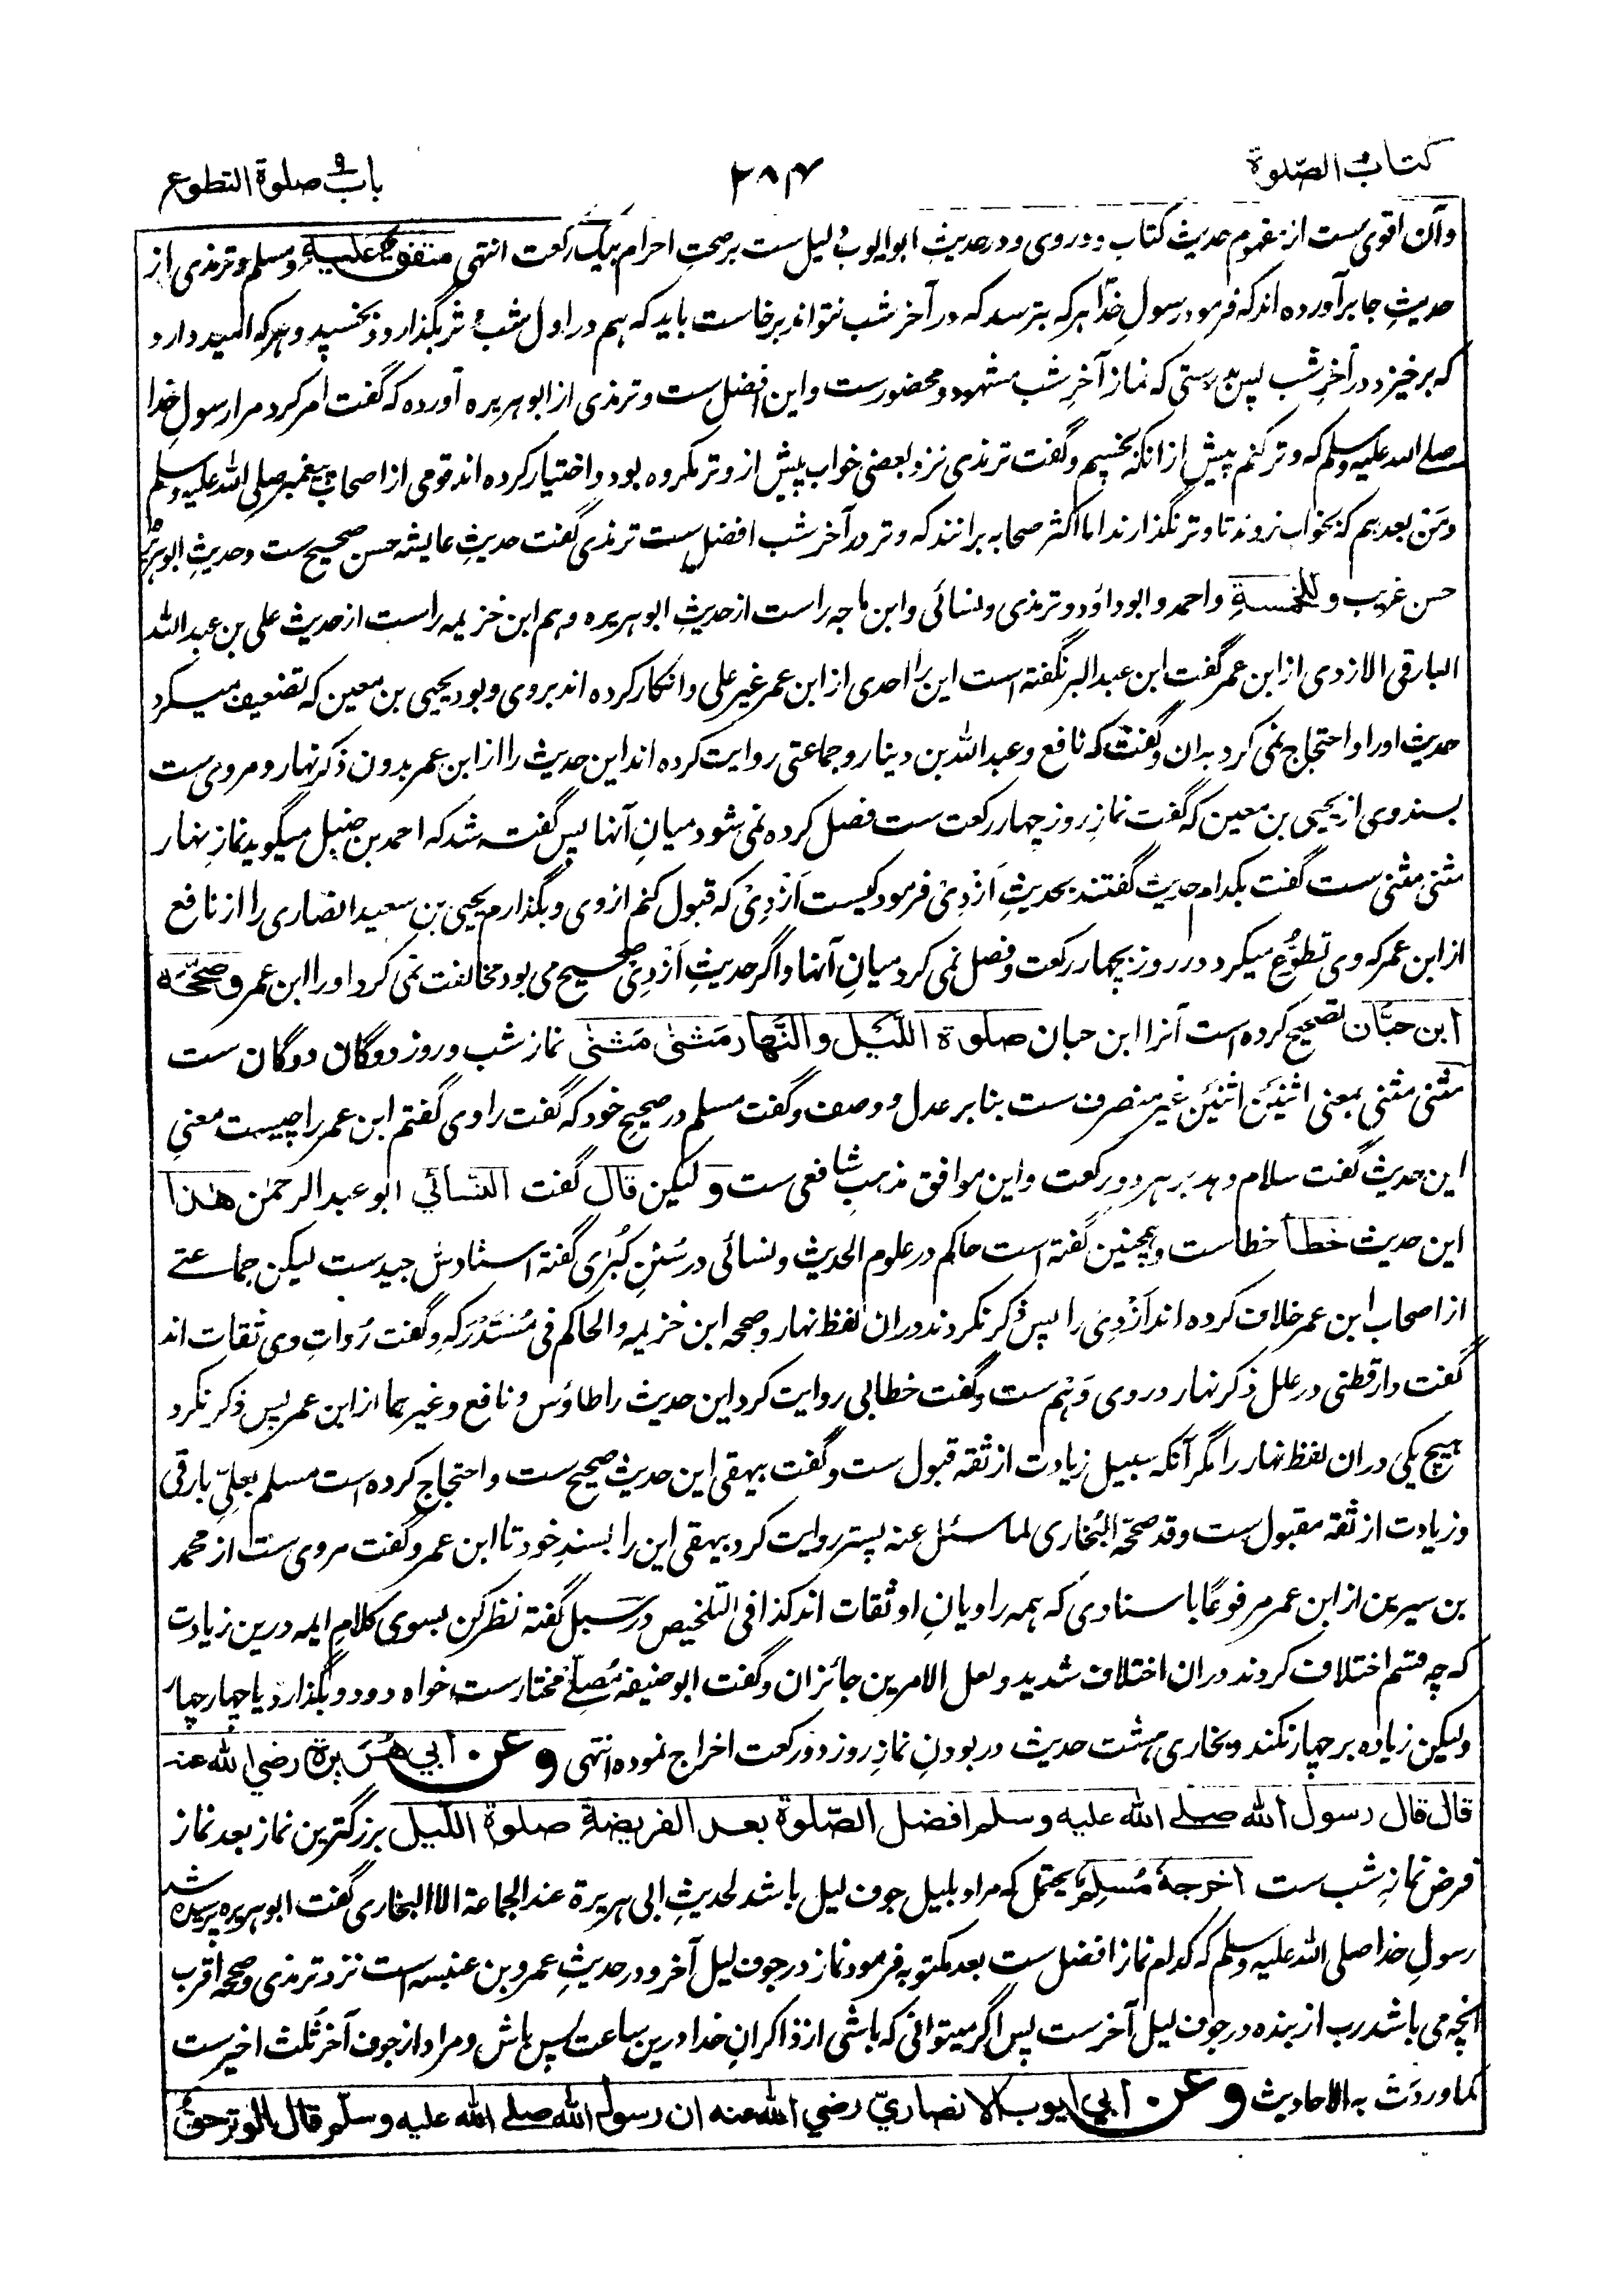 کتاب الصّلوة
۲۸۷
باب صلوة التطوع
وآن اقوی ست از مفهوم حدیث کتاب و دروی و در حدیث ابو ایوب دلیل ست بر صحت احرام بیک رکعت انتهی متفق علیه و مسلم و ترمذی از
حدیثِ جابر آورده اند که فرمود رسولِ خدا هر که بترسد که در آخر شب نتواند برخاست باید که هم در اول شب وتر بگذارد و بخسپد و هر که امید دارد
که برخیزد در آخرِ شب پس بدرستی که نماز آخرِ شب مشهود و محضورست و این افضل ست و ترمذی از ابو هریره آورده که گفت امر کرد مرا رسولِ خدا
صلے الله علیه وسلم که وتر کنم پیش از انکه بخسپم و گفت ترمذی نزد بعضی خواب پیش از وتر مکروه بود و اختیار کرده اند قومی از اصحاب پیغمبر صلی الله علیه وسلم
ومن بعدهم که بخواب نروند تا وتر نگذارند اما اکثر صحابه برانند که وتر در آخر شب افضل ست ترمذی گفت حدیثِ عایشه حسن صحیح ست و حدیثِ ابو هریره
حسن غریب و للخمسةِ و احمد و ابو داؤد و ترمذی و نسائی و ابن ماجه راست از حدیثِ ابو هریره و هم ابن خزیمه راست از حدیث علی بن عبد الله
البارقی الازدی از ابن عمر گفت ابن عبد البر نگفته است این را احدی از ابن عمر غیر علی و انکار کرده اند بروی و بود یحیی بن معین که تضعیف میکرد
حدیث او را و احتجاج نمی کرد بدان و گفت که نافع و عبد الله بن دینار و جماعتی روایت کرده اند این حدیث را از ابن عمر بدون ذکر نهار و مروی ست
بسند وی از یحیی بن معین که گفت نمازِ روز چهار رکعت ست فصل کرده نمی شود میانِ آنها پس گفته شد که احمد بن حنبل میگوید نمازِ نهار
مثنی مثنی ست گفت بکدام حدیث گفتند بحدیثِ اَزْدِیْ فرمود کیست اَزْدِیْ که قبول کنم از وی و بگذارم یحیی بن سعید انصاری را از نافع
از ابن عمر که وی تطوُّع میکرد در روز بچهار رکعت و فصل نمی کرد میانِ آنها و اگر حدیثِ اَزْدِیْ صحیح می بود مخالفت نمی کرد او را ابن عمر و صحّحه
ابن حبَّان تصحیح کرده است آنرا ابن حبان صلوة اللّیل والنَّهار مَثنی مَثنی نماز شب و روز دوگان دوگان ست
مثنی مثنی بمعنی اثنین اثنین غیر منصرف ست بنا بر عدل و وصف و گفت مسلم در صحیحِ خود که گفت راوی گفتم ابن عمر را چیست معنیِ
این حدیث گفت سلام دهد بر هر دو رکعت و این موافق مذهبِ شافعی ست و لیکن قال گفت النَّسائي ابو عبد الرحمٰن هٰذا
این حدیث خطأ خطاست و همچنین گفته است حاکم در علوم الحدیث و نسائی در سُننِ کُبرٰی گفته اسنادش جیدست لیکن جماعتے
از اصحاب ابن عمر خلاف کرده اند اَزْدِی را پس ذکر نکردند دران لفظ نهار و صححه ابن خزیمه والحاکم فی مُستَدْرَکه و گفت رُواتِ وی ثقات اند
گفت دارقطنی در علل ذکر نهار در وی وَهْم ست و گفت خطابی روایت کرد این حدیث را طاؤس و نافع و غیر هما از ابن عمر پس ذکر نکرد
هیچ یکی دران لفظ نهار را مگر آنکه سبیل زیادت از ثقه قبول ست و گفت بیهقی این حدیث صحیح ست و احتجاج کرده است مسلم بعلیّ بارقی
و زیادت از ثقه مقبول ست وقد صححّه البُخاری لما سئل عنه پستر روایت کرد بیهقی این را بسندِ خود تا ابن عمر و گفت مروی ست از محمد
بن سیرین از ابن عمر مرفوعًا باسنادی که همه راویانِ او ثقات اند کذا فی التلخیص در سبل گفته نظر کن بسوی کلامِ ایمه درین زیادت
که چه قسم اختلاف کردند دران اختلاف شدید و لعل الامرین جائزان و گفت ابو حنیفه مُصلّے مختارست خواه دو دو بگذارد یا چهار چهار
ولیکن زیاده بر چهار نکند و بخاری هشت حدیث در بودنِ نمازِ روز دو رکعت اخراج نموده انتهی وعن ابي هُرَيرة رضي الله عنه
قال قال رسول الله صلے الله علیه وسلم افضل الصّلوة بعد الفریضةِ صلوة اللّیل بزرگترین نماز بعد نماز
فرض نمازِ شب ست اخرجهُ مُسلمٌ یحتمل که مراد بلیل جوف لیل باشد لحدیثِ ابی هریرة عند الجماعة الا البخاری گفت ابو هریره پرسیده شد
رسولِ خدا صلی الله علیه وسلم که کدام نماز افضل ست بعد مکتوبه فرمود نماز در جوف لیل آخر و در حدیثِ عمرو بن عنبسه است نزد ترمذی و صححه اقرب
انچه می باشد رب از بنده در جوف لیل آخرست پس اگر میتوانی که باشی از ذاکرانِ خدا درین ساعت پس باش و مراد از جوف آخر ثلث اخیرست
کما وردَتْ به الاحادیث وعن ابي ایوب الانصاريّ رضي الله عنه ان رسول الله صلے الله علیه وسلّم قال الوتر حقٌّ